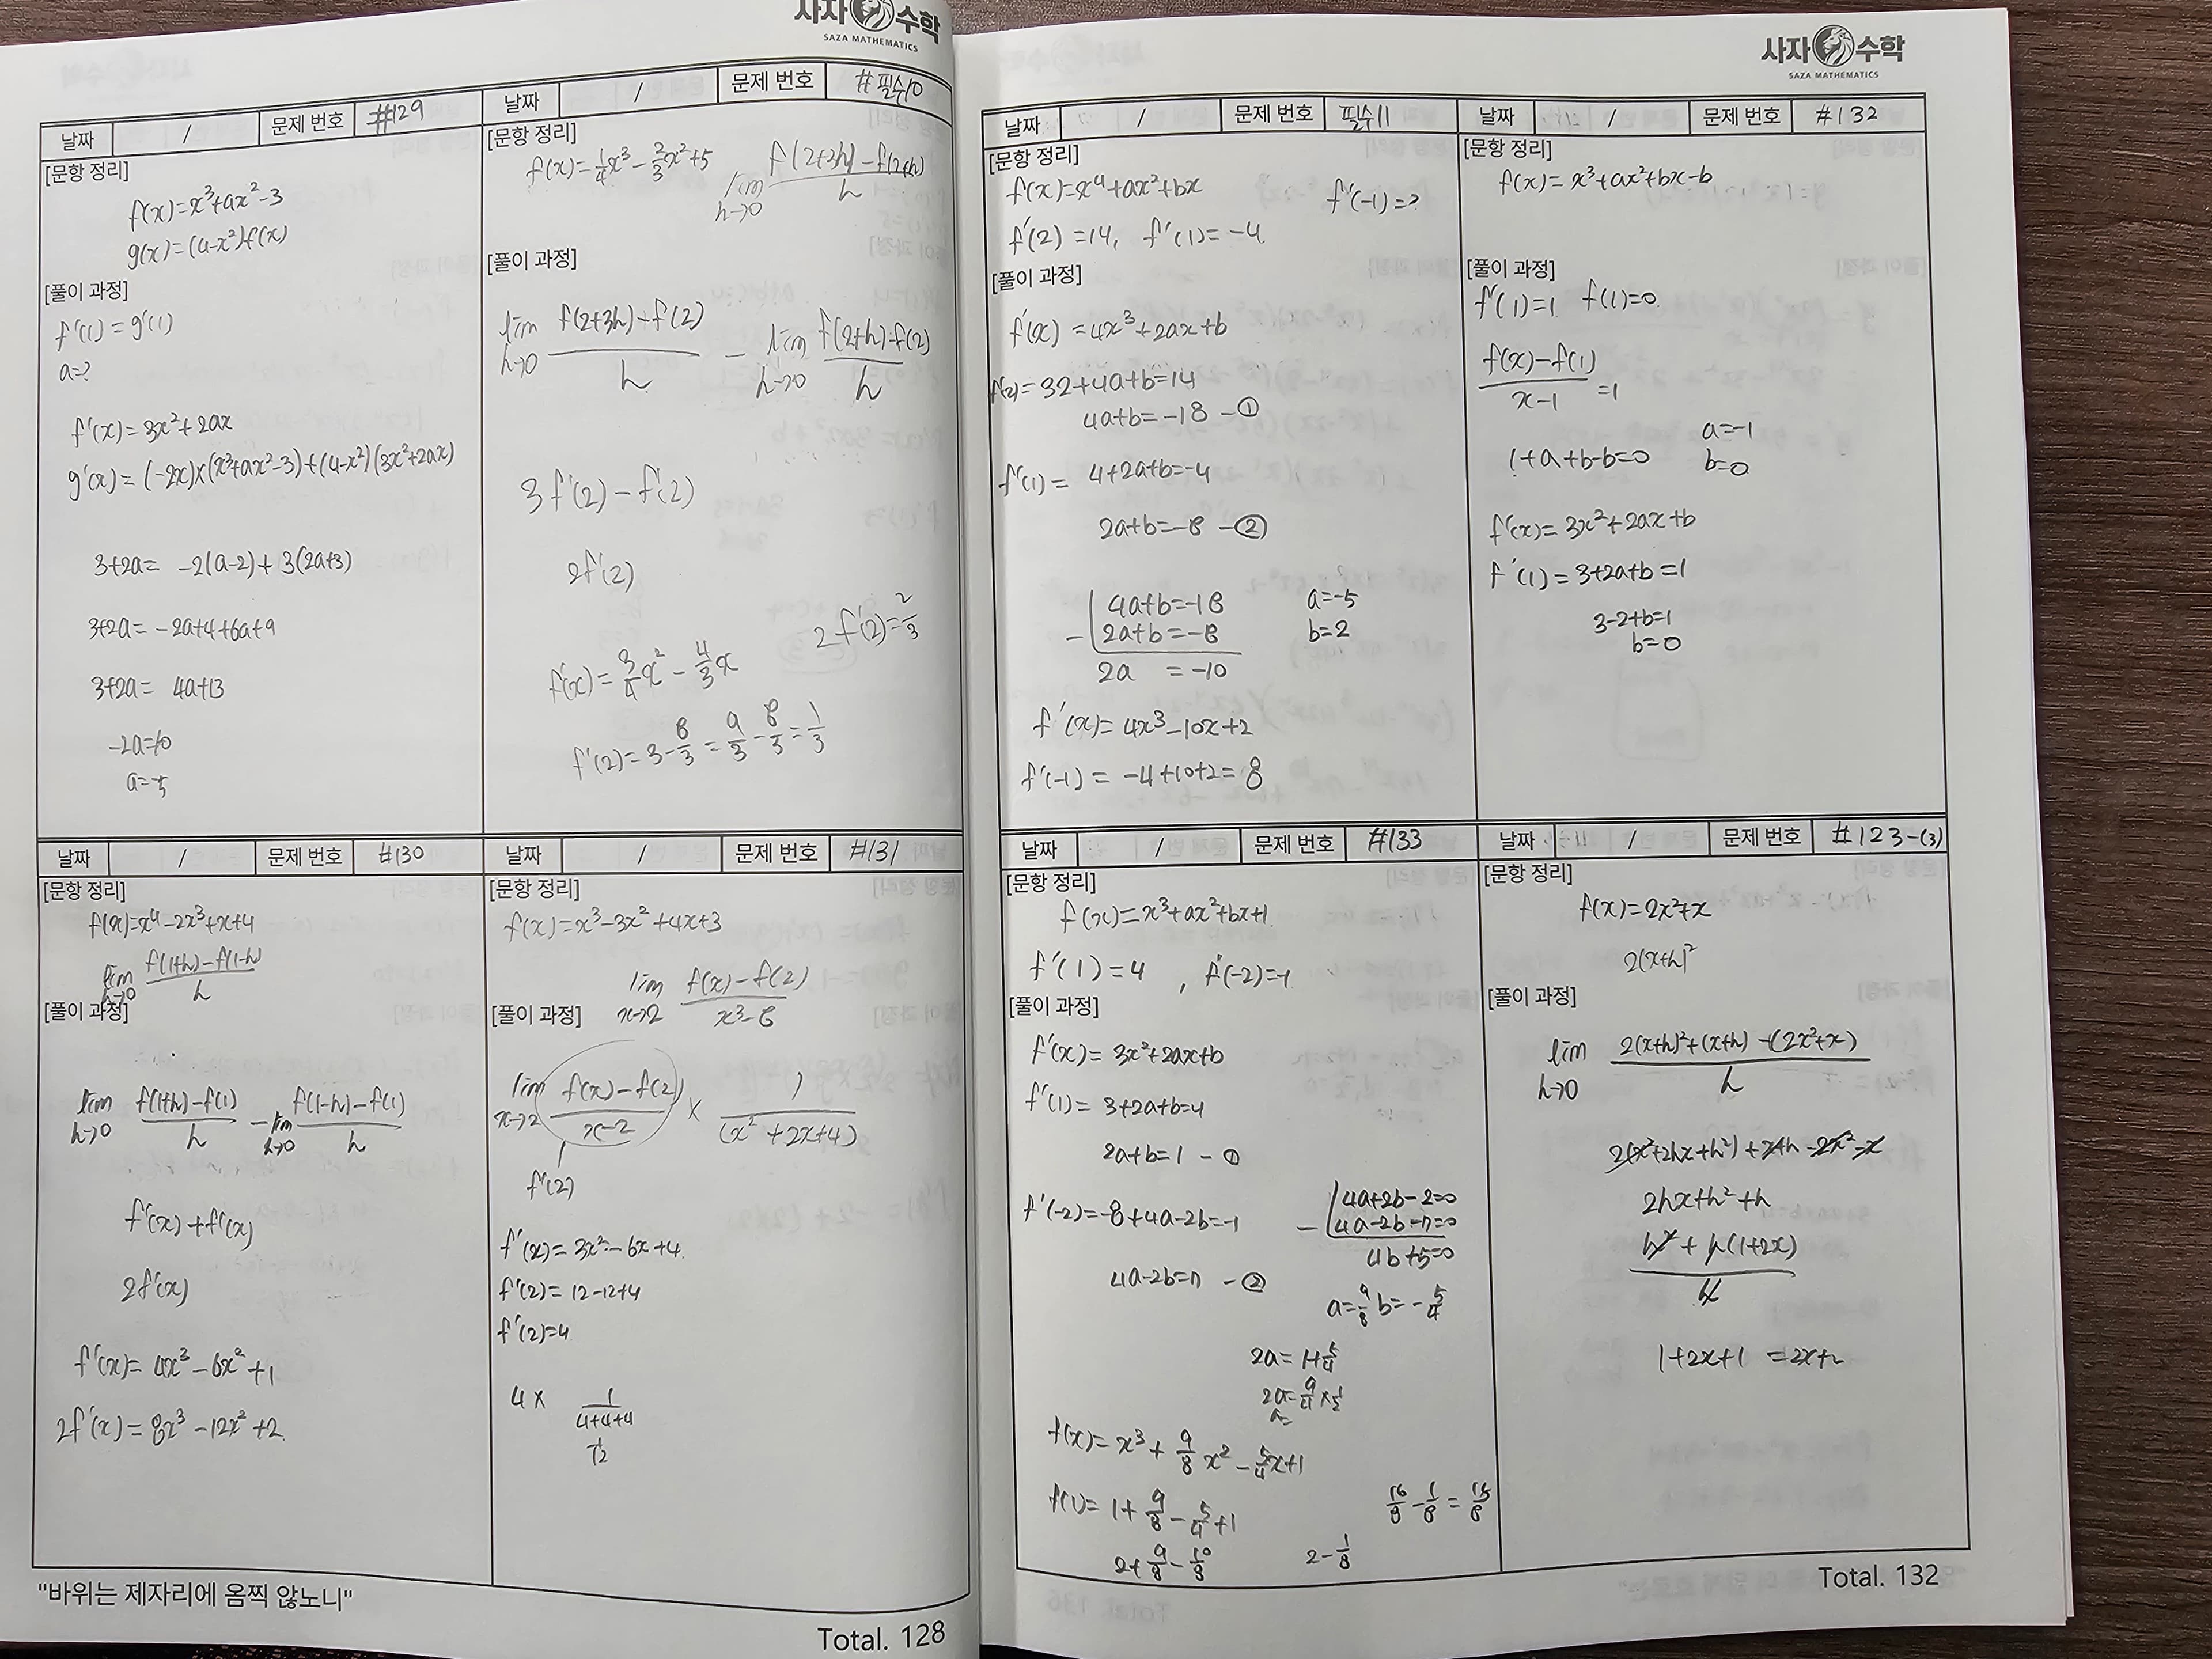 사자 수학
SAZA MATHEMATICS
날짜 / 문제 번호 #129
[문항 정리]
f(x)=x³+ax²-3
g(x)=(4-x²)f(x)
[풀이 과정]
f'(1)=g'(1)
a=?
f'(x)=3x²+2ax
g'(x)=(-2x)×(x³+ax²-3)+(4-x²)(3x²+2ax)
3+2a= -2(a-2)+3(2a+3)
3+2a= -2a+4+6a+9
3+2a= 4a+13
-2a=10
a=-5
날짜 / 문제 번호 #필수10
[문항 정리]
f(x)=1/4x³-2/3x²+5
lim h→0 f(2+3h)-f(2+h)/h
[풀이 과정]
lim h→0 f(2+3h)-f(2)/h - lim h→0 f(2+h)-f(2)/h
3f'(2)-f'(2)
2f'(2)
2f'(2)=2/3
f'(x)=3/4x²-4/3x
f'(2)=3-8/3=9/3-8/3=1/3
날짜 / 문제 번호 #130
[문항 정리]
f(x)=x⁴-2x³+x+4
lim h→0 f(1+h)-f(1-h)/h
[풀이 과정]
lim h→0 f(1+h)-f(1)/h - lim h→0 f(1-h)-f(1)/h
f'(x)+f'(x)
2f'(x)
f'(x)=4x³-6x²+1
2f'(x)=8x³-12x²+2
날짜 / 문제 번호 #131
[문항 정리]
f(x)=x³-3x²+4x+3
lim x→2 f(x)-f(2)/x³-8
[풀이 과정]
lim x→2 f(x)-f(2)/x-2 × 1/(x²+2x+4)
f'(2)
f'(x)=3x²-6x+4
f'(2)=12-12+4
f'(2)=4
4× 1/4+4+4
"바위는 제자리에 옴찍 않노니"
Total. 128
사자 수학
SAZA MATHEMATICS
날짜 / 문제 번호 필수11
[문항 정리]
f(x)=x⁴+ax²+bx f'(-1)=?
f'(2)=14, f'(1)=-4
[풀이 과정]
f'(x)=4x³+2ax+b
f(2)=32+4a+b=14
4a+b=-18 -①
f'(1)= 4+2a+b=-4
2a+b=-8 -②
4a+b=-18 a=-5
- 2a+b=-8 b=2
2a =-10
f'(x)=4x³-10x+2
f'(-1)= -4+10+2=8
날짜 / 문제 번호 #132
[문항 정리]
f(x)=x³+ax²+bx-b
[풀이 과정]
f'(1)=1 f(1)=0
f(x)-f(1)/x-1 =1
a=-1
1+a+b-b=0 b=0
f'(x)=3x²+2ax+b
f'(1)=3+2a+b=1
3-2+b=1
b=0
날짜 / 문제 번호 #133
[문항 정리]
f(x)=x³+ax²+bx+1
f'(1)=4, f'(-2)=-1
[풀이 과정]
f'(x)=3x²+2ax+b
f'(1)=3+2a+b=4
2a+b=1 -①
f'(-2)=-8+4a-2b=-1
4a-2b=7 -②
4a+2b-2=0
- 4a-2b-7=0
4b+5=0
a=9/8 b=-5/4
2a=1+5/4
2a=9/4×1/2
a=
f(x)=x³+9/8x²-5/4x+1
f(1)=1+9/8-5/4+1
2+9/8-10/8
2-1/8
16/8-1/8=15/8
날짜 / 문제 번호 #123-(3)
[문항 정리]
f(x)=2x²+x
2(x+h)²
[풀이 과정]
lim h→0 2(x+h)²+(x+h)-(2x²+x)/h
2(x²+2hx+h²)+x+h-2x²-x
2hx+h²+h
h²+h(1+2x)/h
1+2x+1 =2x+2
Total. 132